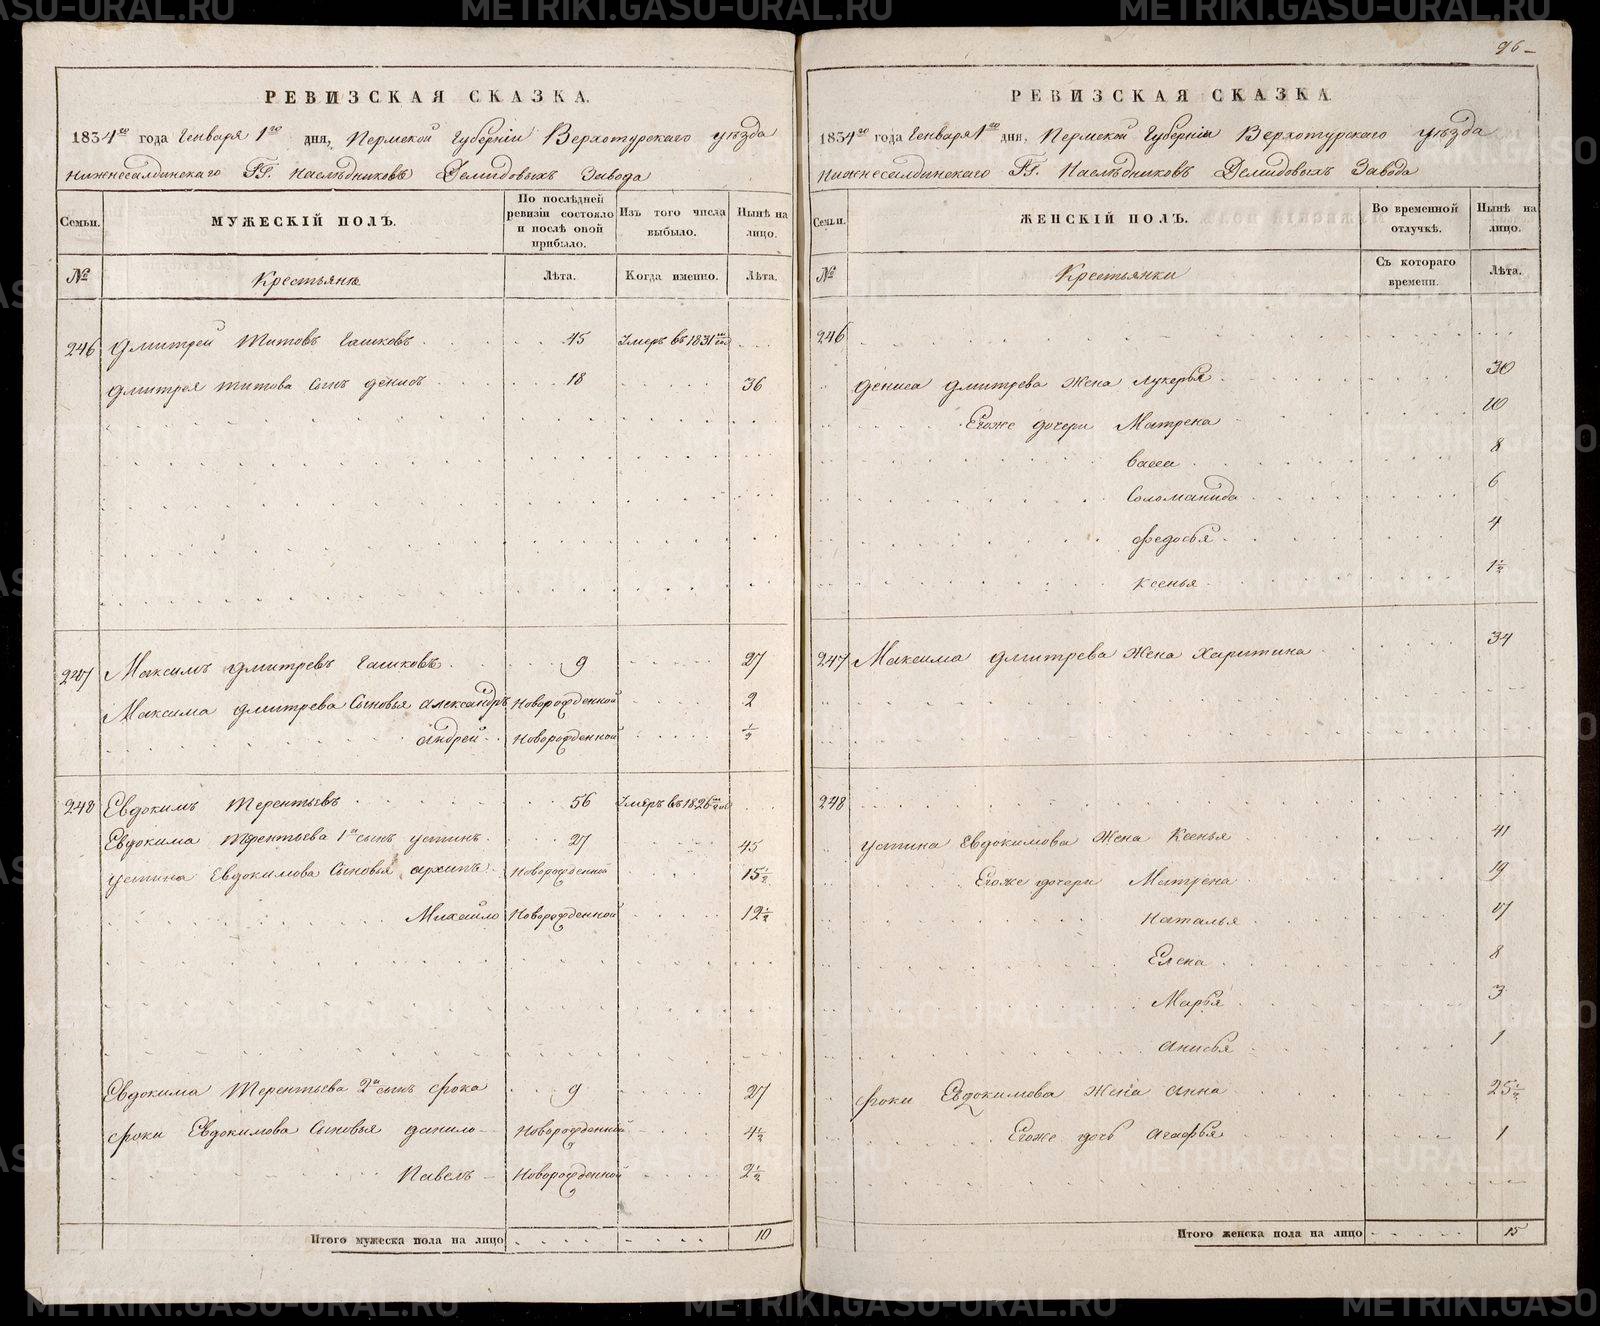 96
РЕВИЗСКАЯ СКАЗКА.
1834го года Генваря 1го дня, Пермской Губерніи Верхотурскаго уѣзда
Нижнесалдинскаго ГГ. Наслѣдниковъ Демидовыхъ Завода
Семьи.
МУЖЕСКІЙ ПОЛЪ.
По послѣдней ревизіи состояло и послѣ оной прибыло.
Изъ того числа выбыло.
Нынѣ на лицо.
№ Крестьяне Лѣта. Когда именно. Лѣта.
246 Дмитрей Титовъ Гашковъ 45 Умеръ въ 1831м
Дмитрея Титова Сынъ Денисъ 18 36
247 Максимъ Дмитревъ Гашковъ 9 27
Максима Дмитрева Сыновья Александръ Новорожденной 2
Андрей Новорожденной ½
248 Евдокимъ Терентьевъ 56 Умеръ въ 1826м
Евдокима Терентьева 1й сынъ Устинъ 27 45
Устина Евдокимова Сыновья Архипъ Новорожденной 15½
Михайло Новорожденной 12½
Евдокима Терентьева 2й сынъ Фрока 9 27
Фроки Евдокимова Сыновья Данило Новорожденной 4½
Павелъ Новорожденной 2½
Итого мужеска пола на лицо 10
РЕВИЗСКАЯ СКАЗКА.
1834го года Генваря 1го дня, Пермской Губерніи Верхотурскаго уѣзда
Нижнесалдинскаго ГГ. Наслѣдниковъ Демидовыхъ Завода
Семьи.
ЖЕНСКІЙ ПОЛЪ.
Во временной отлучкѣ.
Нынѣ на лицо.
№ Крестьянки Съ котораго времени. Лѣта.
246
Дениса Дмитрева Жена Лукерья 30
Егоже дочери Матрена 10
Васса 8
Соломанида 6
Федосья 4
Ксенья 1½
247 Максима Дмитрева Жена Харитина 34
248
Устина Евдокимова Жена Ксенья 41
Егоже дочери Матрена 19
Наталья 17
Елена 8
Марья 3
Анисья 1
Фроки Евдокимова Жена Анна 25½
Егоже дочь Агафья 1
Итого женска пола на лицо 15
METRIKI.GASO-URAL.RU